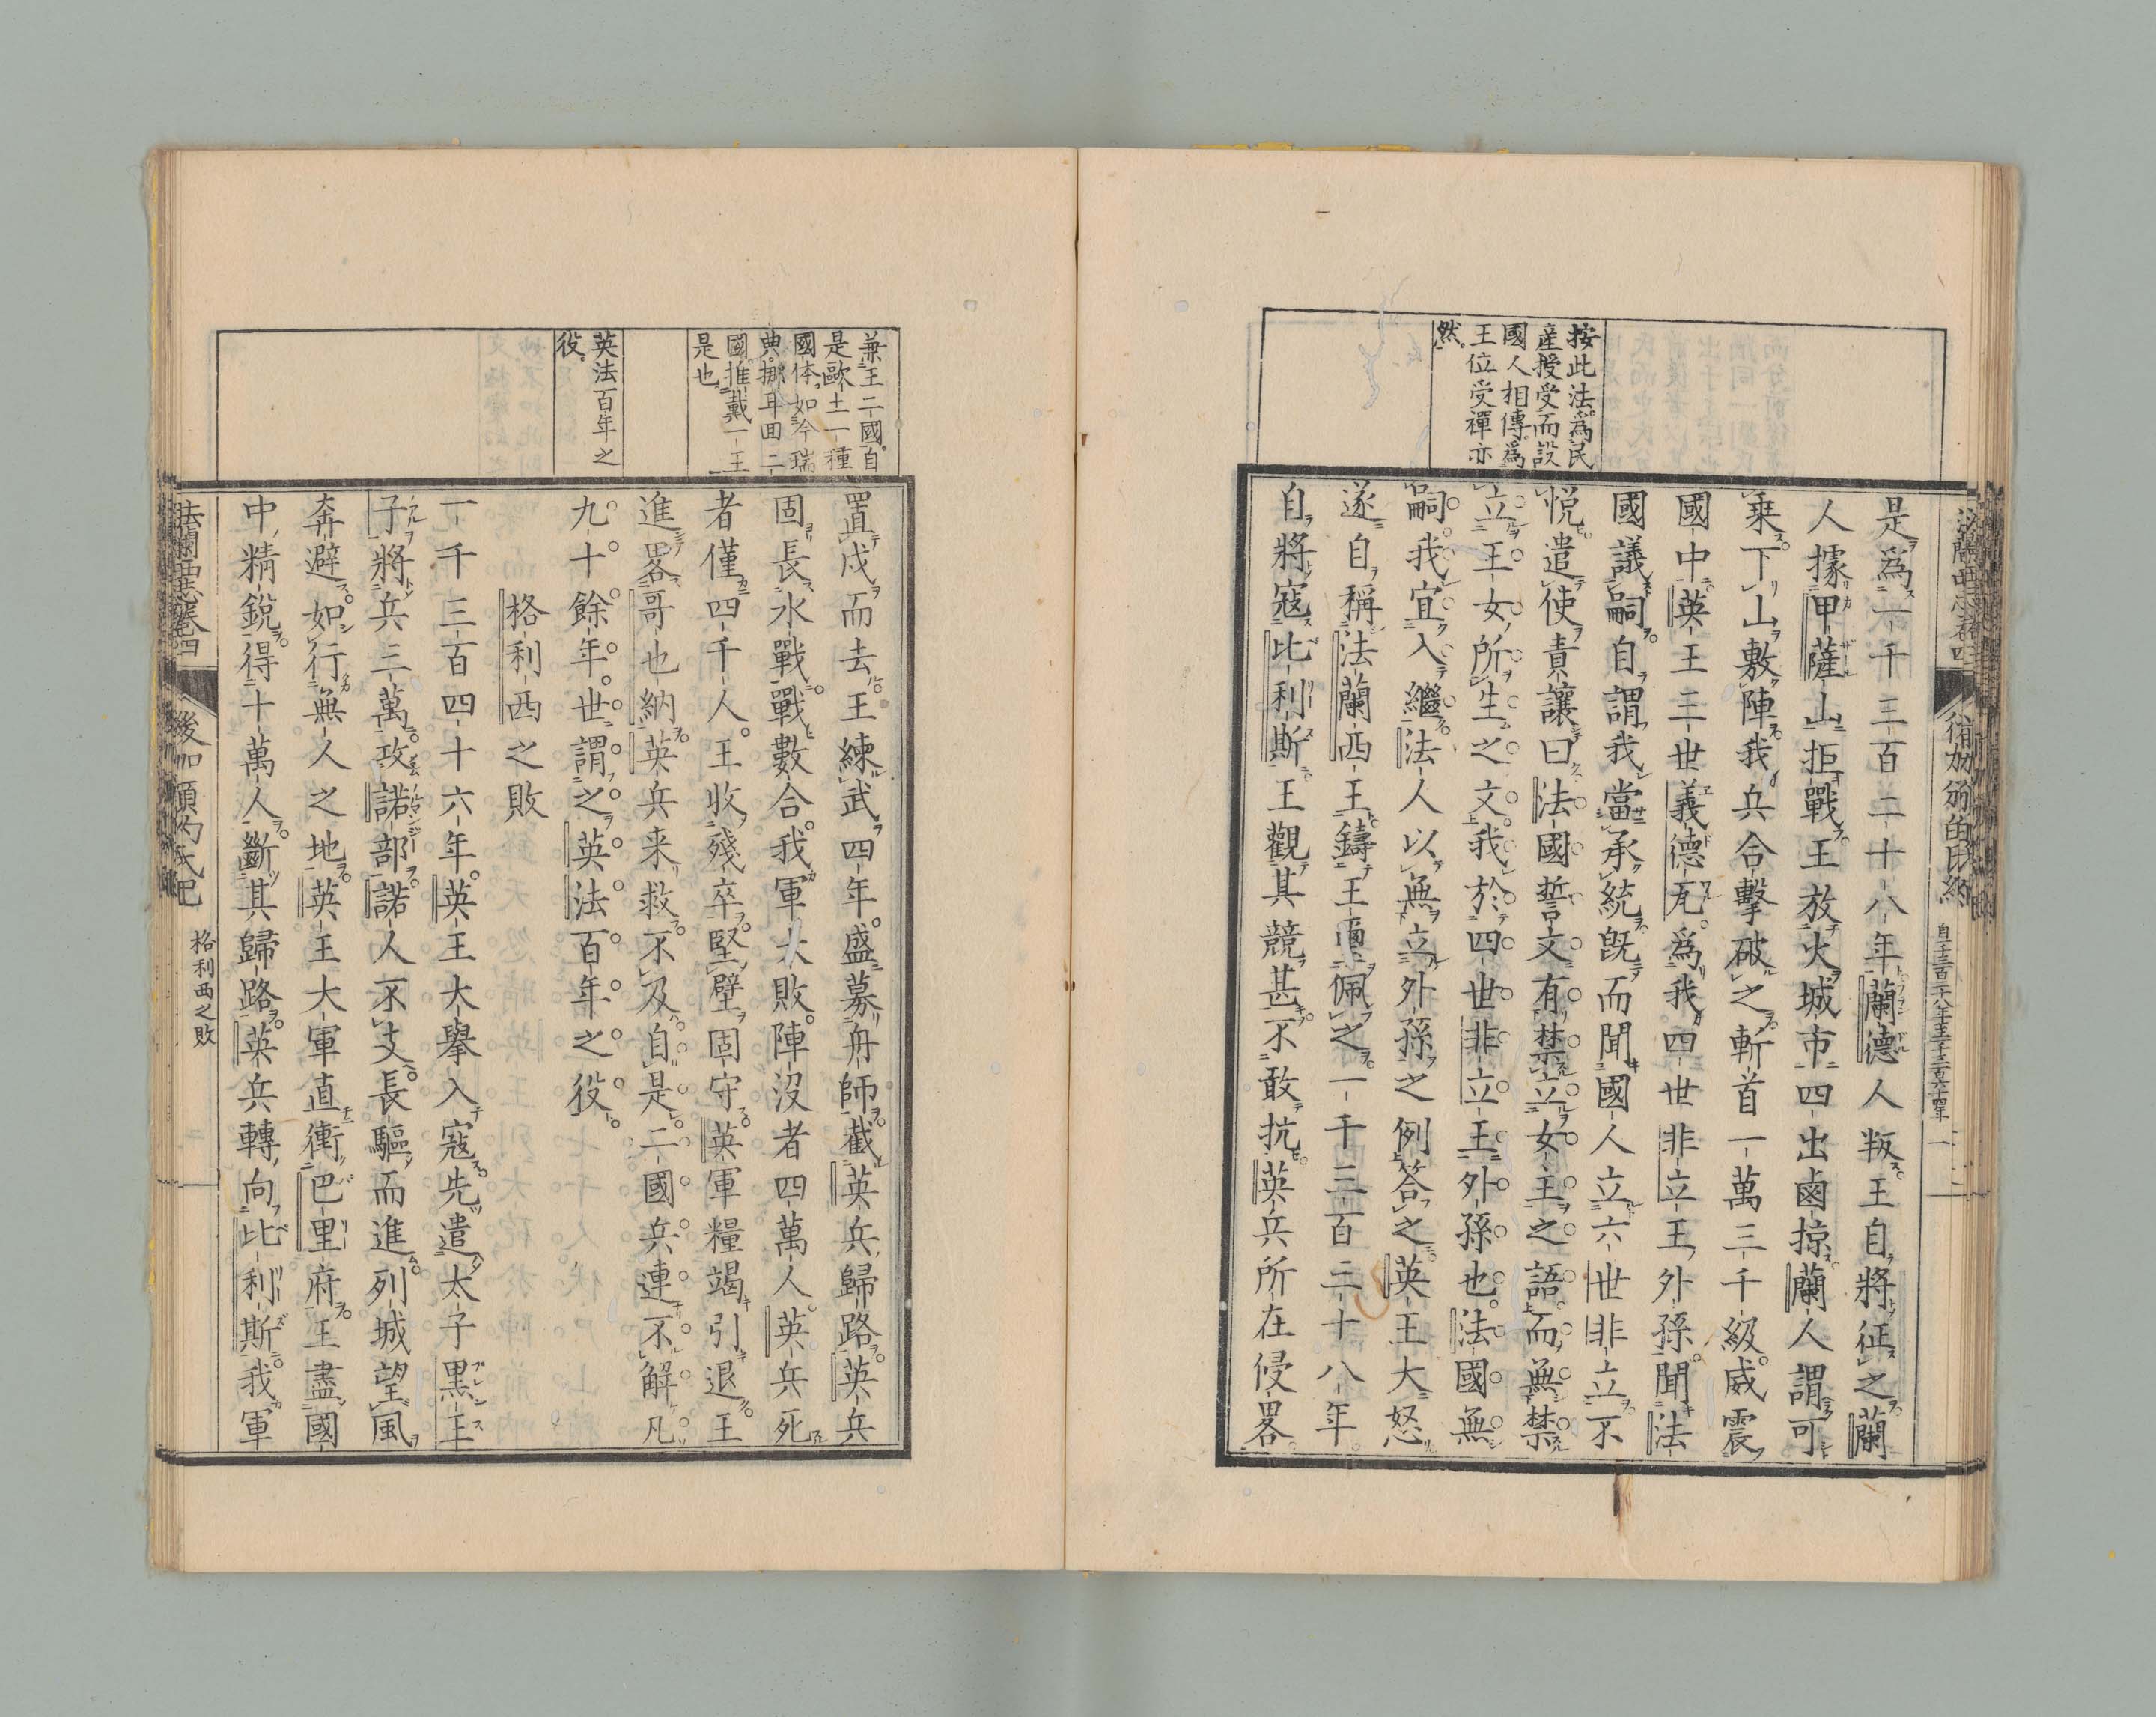 按此法為民
産授受而設
國人相傳為
王位受禪亦
然
是為一千三百二十八年蘭德人叛王自將征之蘭
人據甲薩山拒戰王放火城市四出鹵掠蘭人謂可
乗下山敷陣我兵合擊破之斬首一萬三千級威震
國中英王三世義德瓦為我四世非立王外孫聞法
國議嗣自謂我當承統旣而聞國人立六世非立不
悦遣使責讓曰法國誓文有禁立女主之語而無禁
立王女所生之文我於四世非立王外孫也法國無
嗣我宜入繼法人以無立外孫之例答之英王大怒
遂自稱法蘭西王鑄王璽佩之一千三百三十八年
自將寇比利斯王觀其競甚不敢抗英兵所在侵畧
兼王二國自
是歐土一種
國体如今瑞
典挪耳回二
國推戴一王
是也
英法百年之
役
置戍而去王練武四年盛募舟師截英兵歸路英兵
固長水戰戰數合我軍大敗陣沒者四萬人英兵死
者僅四千人王收殘卒堅壁固守英軍糧竭引退王
進畧哥也納英兵来救不及自是二國兵連不解凡
九十餘年世謂之英法百年之役
格利西之敗
一千三百四十六年英王大舉入寇先遣太子黒王
子將兵三萬攻諾部諾人不支長驅而進列城望風
奔避如行無人之地英王大軍直衝巴里府王盡國
中精鋭得十萬人斷其歸路英兵轉向比利斯我軍
法蘭西志卷四
格利西之敗